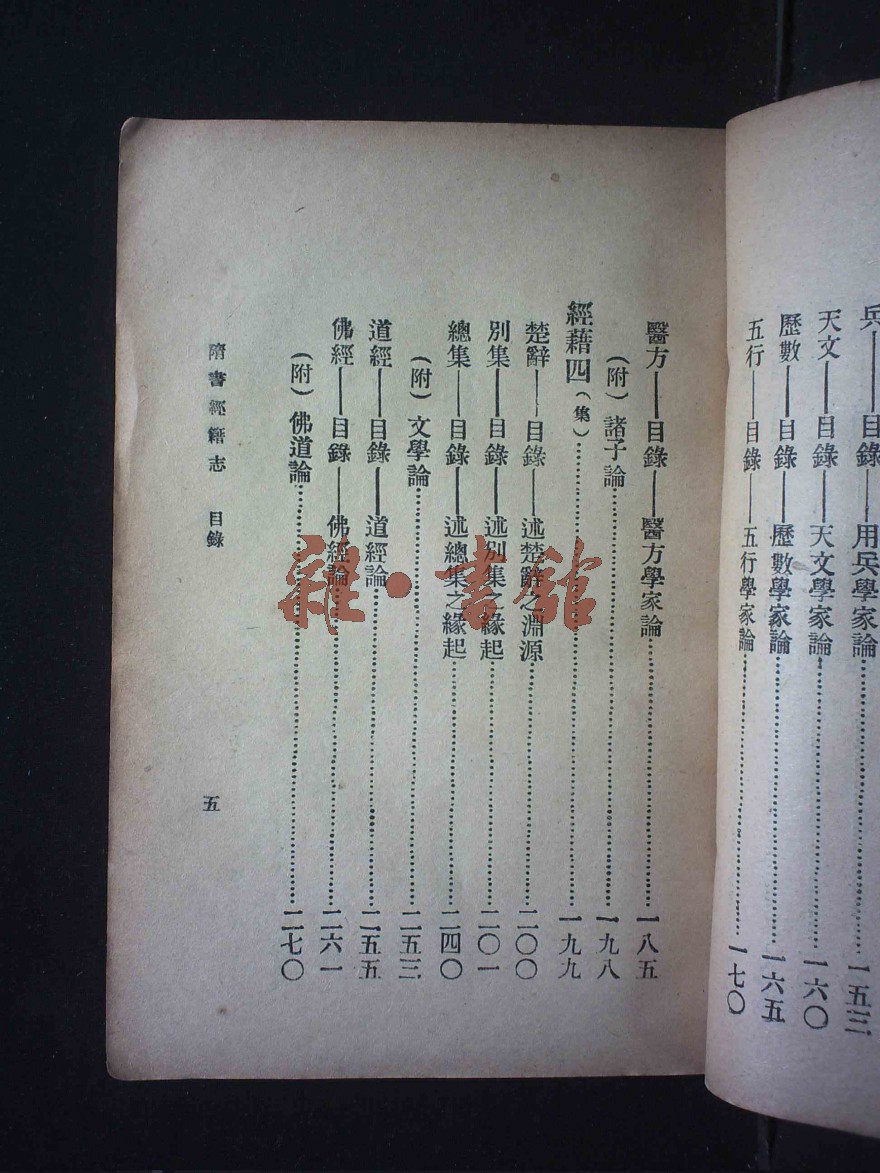 兵——目錄——用兵學家論……一五三
天文——目錄——天文學家論……一六〇
歷數——目錄——歷數學家論……一六五
五行——目錄——五行學家論……一七〇
醫方——目錄——醫方學家論……一八五
(附)諸子論……一九八
經藉四(集)……一九九
楚辭——目錄——述楚辭之淵源……二〇〇
別集——目錄——述別集之緣起……二〇一
總集——目錄——述總集之緣起……二四〇
(附)文學論……二五三
道經——目錄——道經論……二五五
佛經——目錄——佛經論……二六一
(附)佛道論……二七〇
隋書經籍志 目錄 五
雜·書館